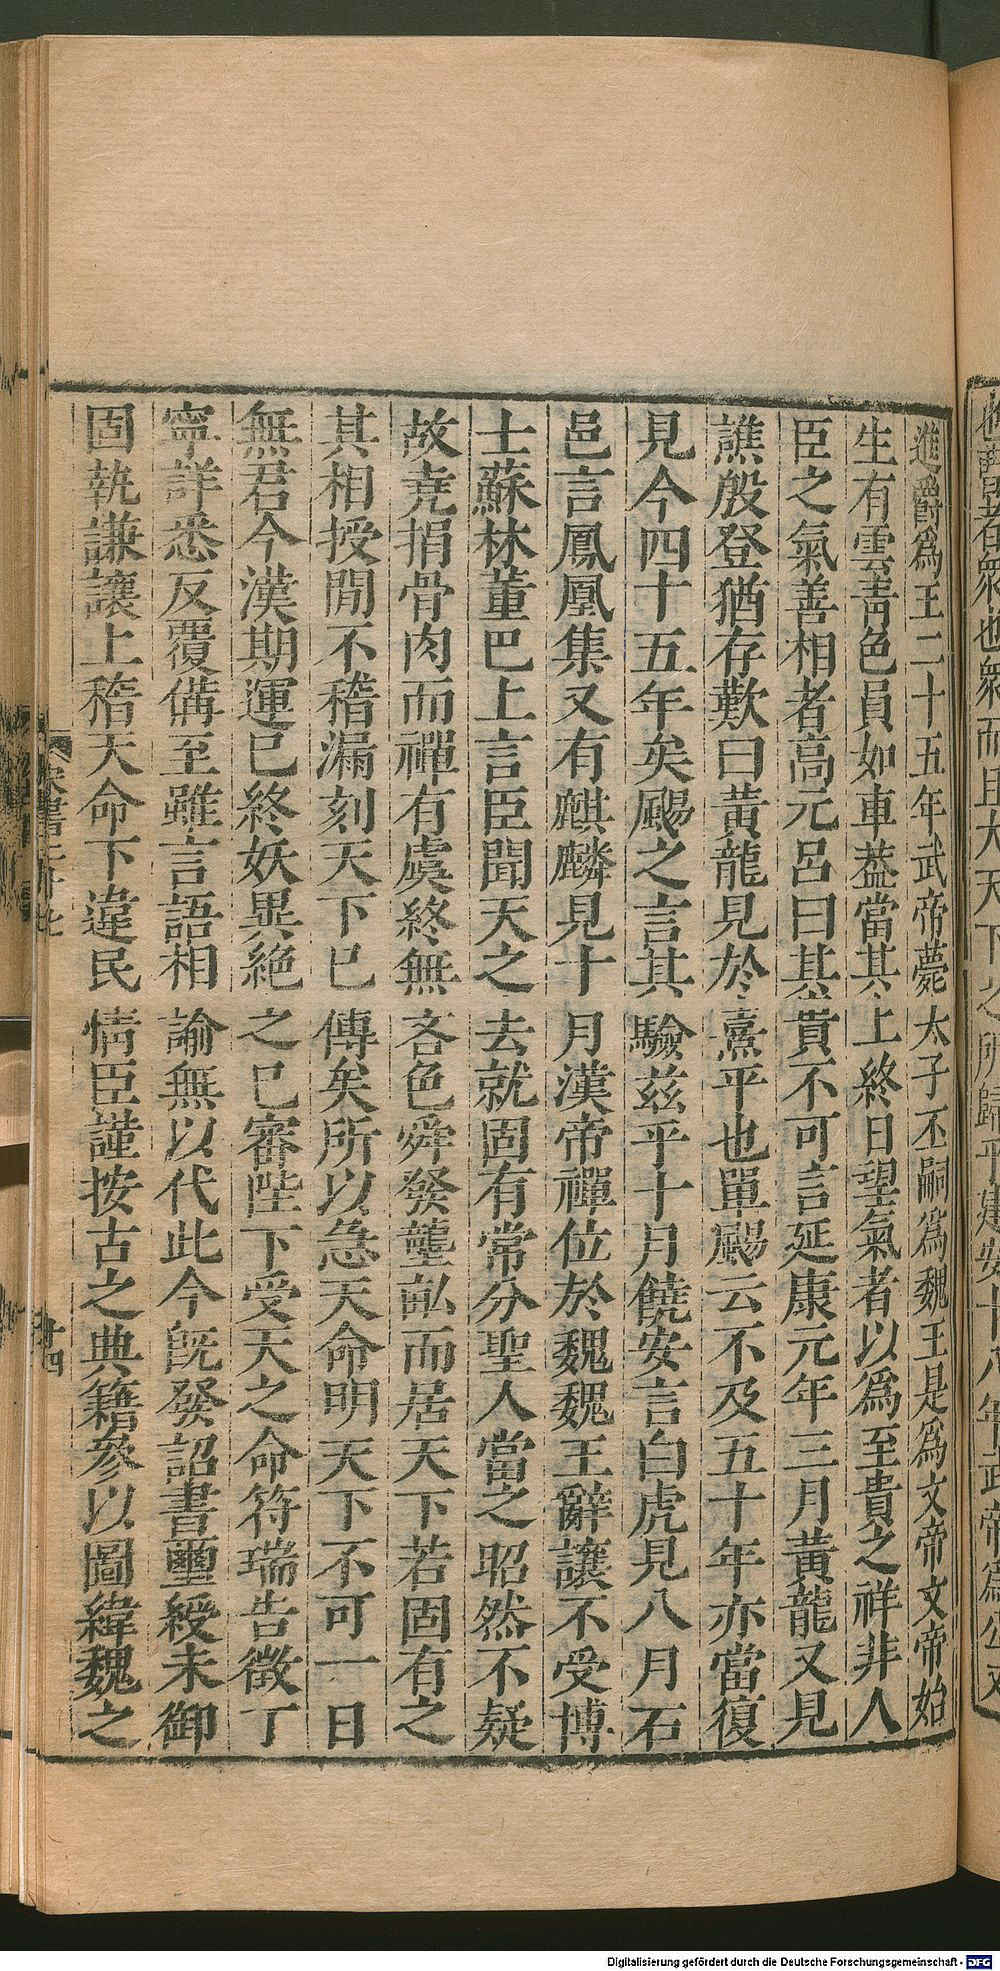 進爵爲王二十五年武帝薨太子丕嗣爲魏王是爲文帝文帝始
生有雲青色員如車葢當其上終日望氣者以爲至貴之祥非人
臣之氣善相者高元呂曰其貴不可言延康元年三月黃龍又見
譙殷登猶存歎曰黃龍見於熹平也單颺云不及五十年亦當復
見今四十五年矣颺之言其驗茲乎十月饒安言白虎見八月石
邑言鳳凰集又有麒麟見十月漢帝禪位於魏魏王辭讓不受博
士蘇林董巴上言臣聞天之去就固有常分聖人當之昭然不疑
故堯捐骨肉而禪有虞終無吝色舜發壟畝而居天下若固有之
其相授間不稽漏刻天下已傳矣所以急天命明天下不可一日
無君今漢期運已終妖異絕之已審陛下受天之命符瑞告徵丁
寧詳悉反覆備至雖言語相諭無以代此今旣發詔書璽綬未御
固執謙讓上稽天命下違民情臣謹按古之典籍參以圖緯魏之
宋書二十七
十四
者衆也衆而且大天下之所歸乎建安十八年武帝爲公又
Digitalisierung gefördert durch die Deutsche Forschungsgemeinschaft - DFG